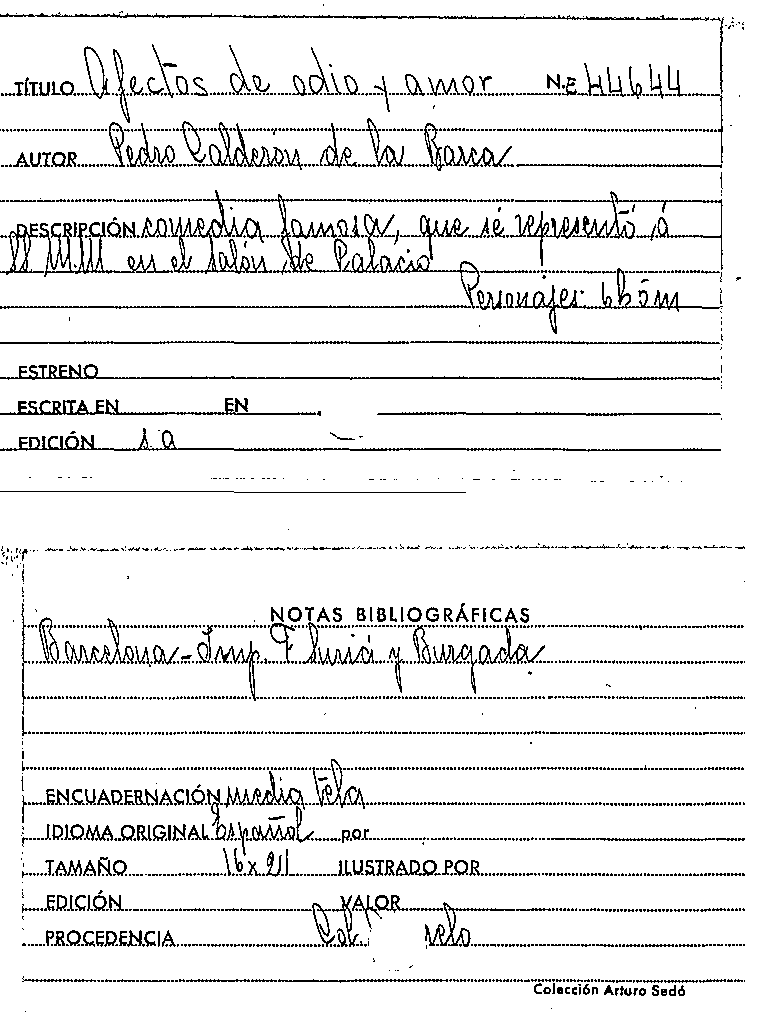 TÍTULO Afectos de odio y amor N.E 44644
AUTOR Pedro Calderón de la Barca
DESCRIPCIÓN comedia famosa, que se representó á
SS MM en el salón de Palacio
Personajes: 6h 5m
ESTRENO
ESCRITA EN EN
EDICIÓN 1a
NOTAS BIBLIOGRÁFICAS
Barcelona - Imp. F Suriá y Burgada
ENCUADERNACIÓN media tela
IDIOMA ORIGINAL Español por
TAMAÑO 16 x 21 ILUSTRADO POR
EDICIÓN VALOR
PROCEDENCIA Col.
Colección Arturo Sedó